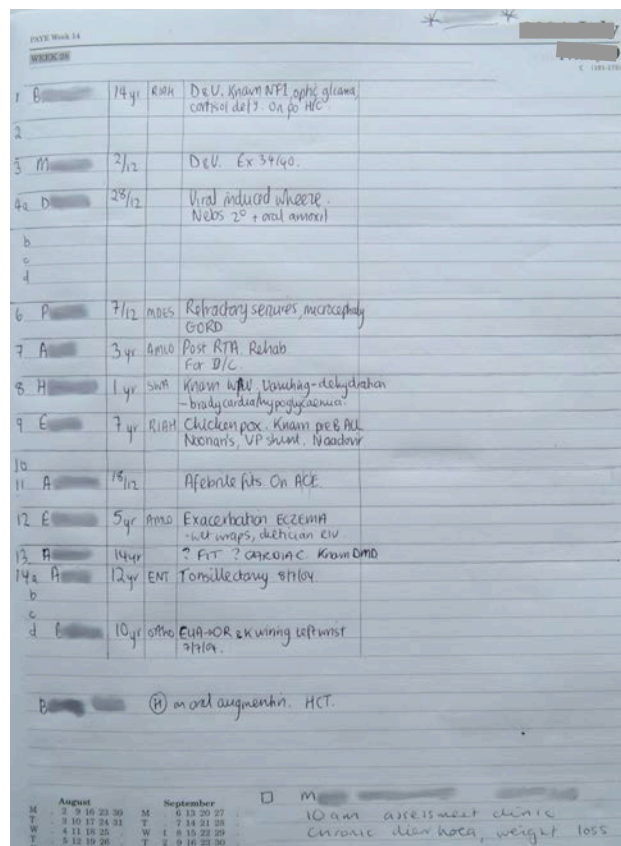 PAYE Week 14
WEEK 28
1 B 14yr RIAH D&V. Known NF1, optic glioma,
cortisol def. On po H/C.
2
3 M 2/12 D&V. Ex 34/40.
4a D 28/12 Viral induced wheeze.
Nebs 2° + oral amoxil
b
c
d
6 P 7/12 MDES Refractory seizures, microcephaly
GORD
7 A 3yr AMLO Post RTA. Rehab
For D/C.
8 H 1yr SWA Known Vomiting - dehydration
- bradycardia/hypoglycaemia.
9 E 7yr RIAH Chicken pox. Known pre B ALL
Noonan's, VP shunt.
10
11 A 18/12 Afebrile fits. On ACE.
12 E 5yr AMLO Exacerbation ECZEMA
- wet wraps, dietician
13 A 14yr ? FIT ? CARDIAC. Known DMD
14a A 12yr ENT Tonsillectomy 8/7/04.
b
c
d B 10yr ortho EUA → OR & K wiring left wrist
7/7/04.
B (H) on oral augmentin. HCT.
M
10 am assessment clinic
chronic diarrhoea, weight loss
August
M . 2 9 16 23 30
T . 3 10 17 24 31
W . 4 11 18 25 .
T . 5 12 19 26 .
September
M . 6 13 20 27 .
T . 7 14 21 28 .
W 1 8 15 22 29 .
T 2 9 16 23 30 .